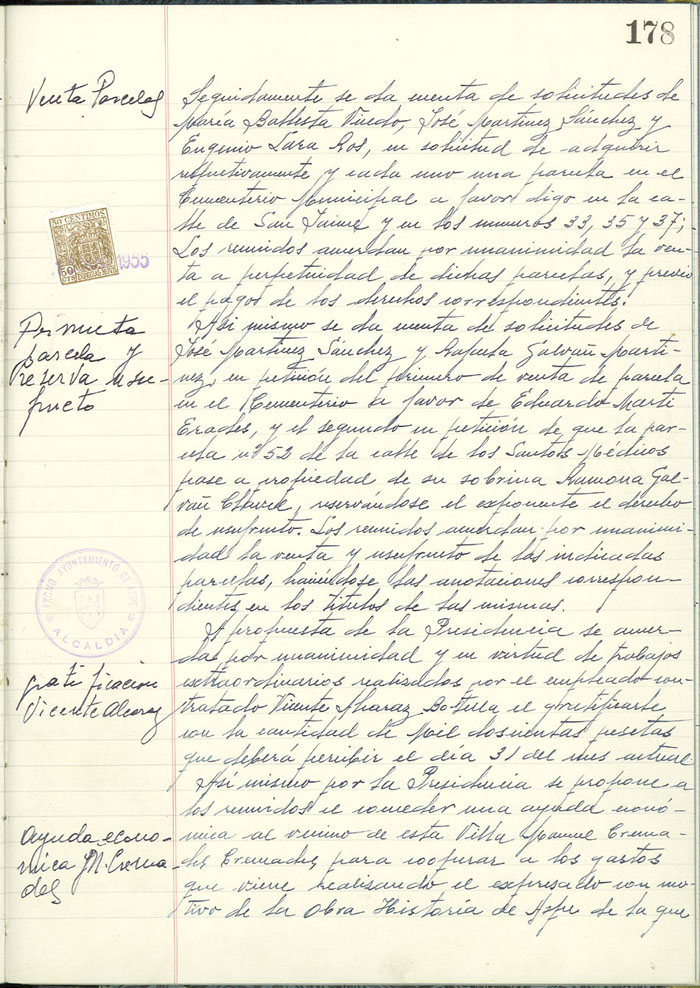 178
Venta Parcelas
Seguidamente se da cuenta de solicitudes de
María Battista Vicedo, José Martinez Sánchez y
Eugenio Lara Ros, en solicitud de adquirir
respectivamente y cada uno una parcela en el
Cementerio Municipal a favor digo en la ca-
lle de San Jaime y en los numeros 33, 35 y 37;
Los reunidos acuerdan por unanimidad la ven-
ta a perpetuidad de dichas parcelas, y previo
el pago de los derechos correspondientes.
50 CENTIMOS
50
CTS
1955
Permuta
parcela y
Reserva usu-
fructo
Asi mismo se da cuenta de solicitudes de
José Martinez Sánchez y Rafaela Galvañ Marti-
nez, en petición del primero de venta de parcela
en el Cementerio a favor de Eduardo Marti
Erades, y el segundo en petición de que la par-
cela nº 52 de la calle de los Santos Médicos
pase a propiedad de su sobrina Ramona Gal-
vañ, reservándose el exponente el derecho
de usufructo. Los reunidos acuerdan por unanimi-
dad la venta y usufructo de las indicadas
parcelas, haciéndose las anotaciones correspon-
dientes en los titulos de las mismas.
EXCMO. AYUNTAMIENTO DE ASPE
ALCALDIA
A propuesta de la Presidencia se acuer-
da por unanimidad y en virtud de trabajos
extraordinarios realizados por el empleado con-
tratado Vicente Alcaraz Botella el gratificarle
con la cantidad de Mil doscientas pesetas
que deberá percibir el día 31 del mes actual
gratificacion
Vicente Alcaraz
Asi mismo por la Presidencia se propone a
los reunidos el conceder una ayuda econó-
mica al vecino de esta Villa Manuel Crema-
des Cremades, para cooperar a los gastos
que viene realizando el expresado con mo-
tivo de la Obra Historia de Aspe de la que
Ayuda econo-
mica M. Crema-
des